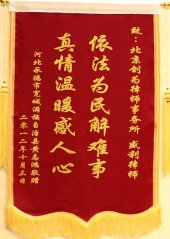 致：北京创为律师事务所 威利律师
依法为民解难事
真情温暖感人心
河北承德市宽城满族自治县黄志鸿敬赠
二零一二年十月三日